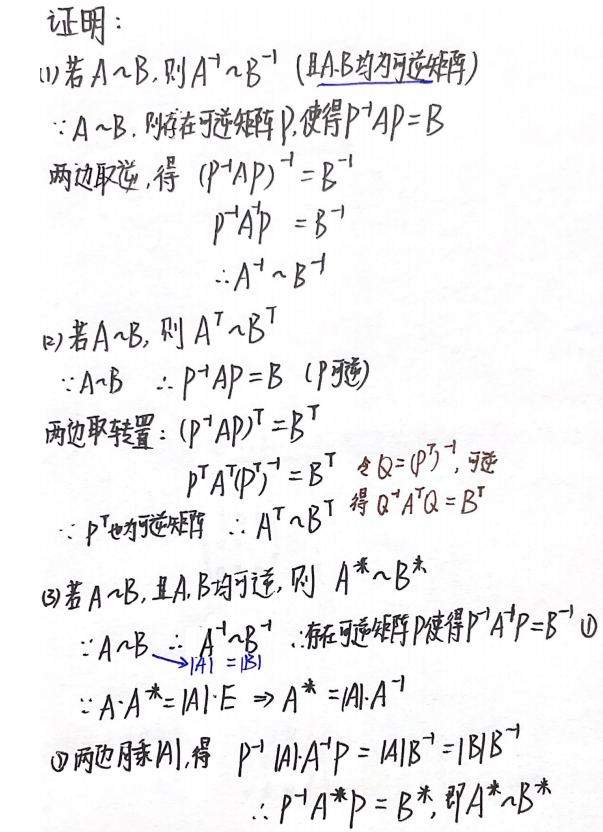 证明：
(1) 若A~B, 则A⁻¹~B⁻¹ (且A.B均为可逆矩阵)
∵A~B, 则存在可逆矩阵P, 使得P⁻¹AP=B
两边取逆, 得 (P⁻¹AP)⁻¹=B⁻¹
P⁻¹A⁻¹P =B⁻¹
∴A⁻¹~B⁻¹
(2) 若A~B, 则 Aᵀ~Bᵀ
∵A~B ∴P⁻¹AP=B (P可逆)
两边取转置: (P⁻¹AP)ᵀ=Bᵀ
PᵀAᵀ(Pᵀ)⁻¹=Bᵀ 令Q=(Pᵀ)⁻¹, 可逆
∵Pᵀ也为可逆矩阵 ∴Aᵀ~Bᵀ 得Q⁻¹AᵀQ=Bᵀ
(3) 若A~B, 且A,B均可逆, 则 A*~B*
∵A~B ∴A⁻¹~B⁻¹ ∴存在可逆矩阵P使得P⁻¹A⁻¹P=B⁻¹ ①
→|A|=|B|
∵A·A*=|A|·E ⇒ A*=|A|·A⁻¹
①两边同乘|A|, 得 P⁻¹|A|·A⁻¹P=|A|B⁻¹=|B|B⁻¹
∴P⁻¹A*P=B*, 即A*~B*